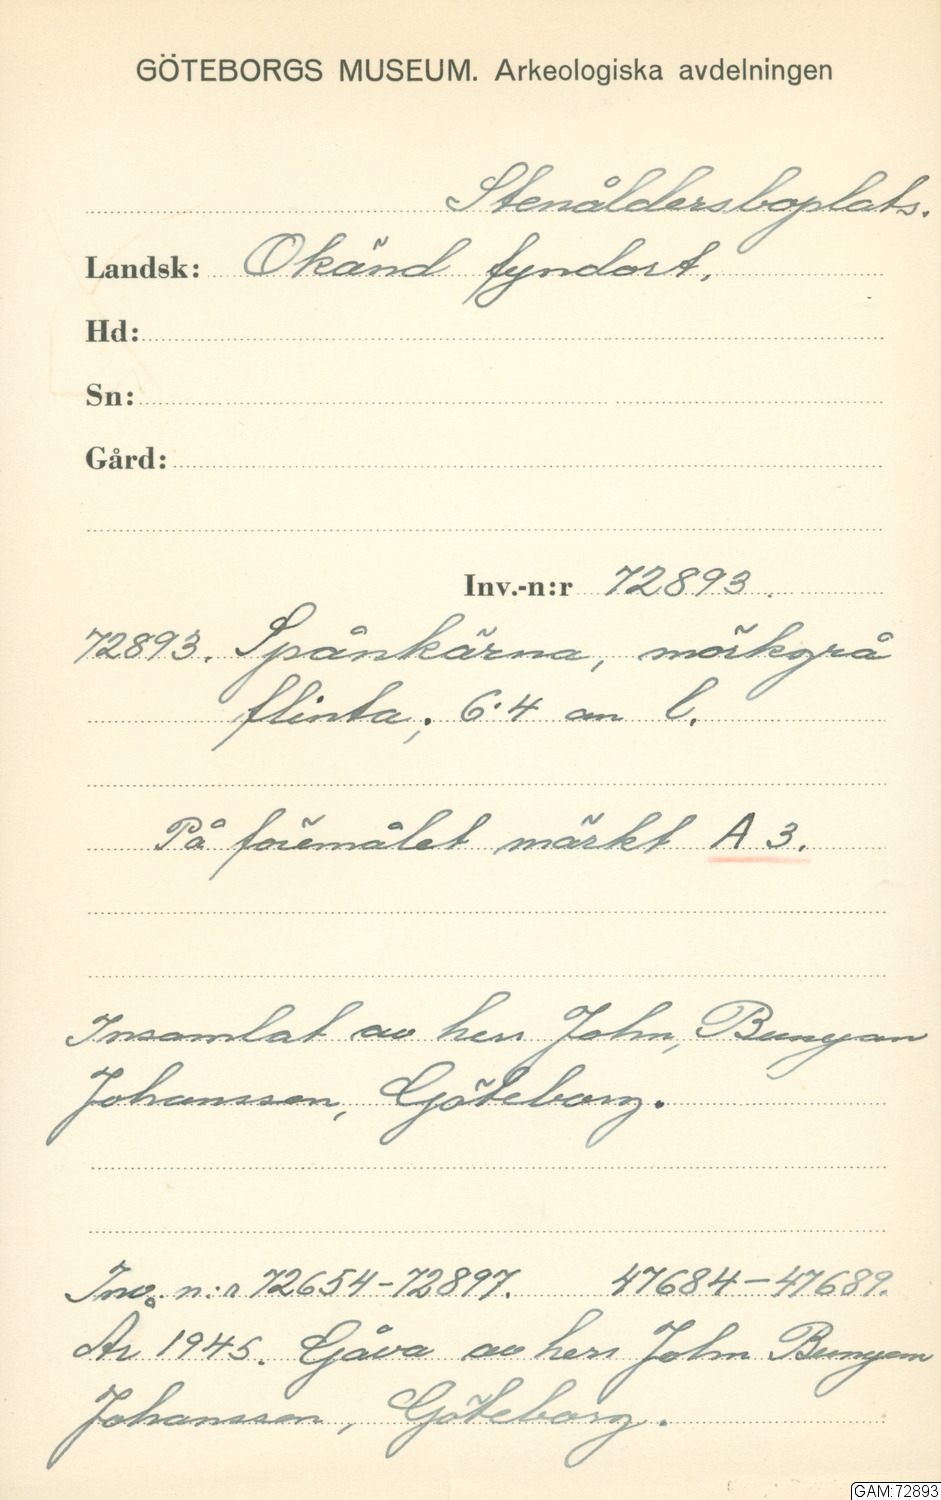 GÖTEBORGS MUSEUM. Arkeologiska avdelningen
Stenåldersboplats.
Landsk: Okänd fyndort.
Hd:
Sn:
Gård:
Inv.-n:r 72893.
72893. Spånkärna, mörkgrå
flinta; 6·4 cm l.
På föremålet märkt A 3.
Insamlat av herr John, Bunyan
Johansson, Göteborg.
Inv. n:r 72654-72897. 47684-47689.
År 1945. Gåva av herr John Bunyan
Johansson, Göteborg.
GAM:72893